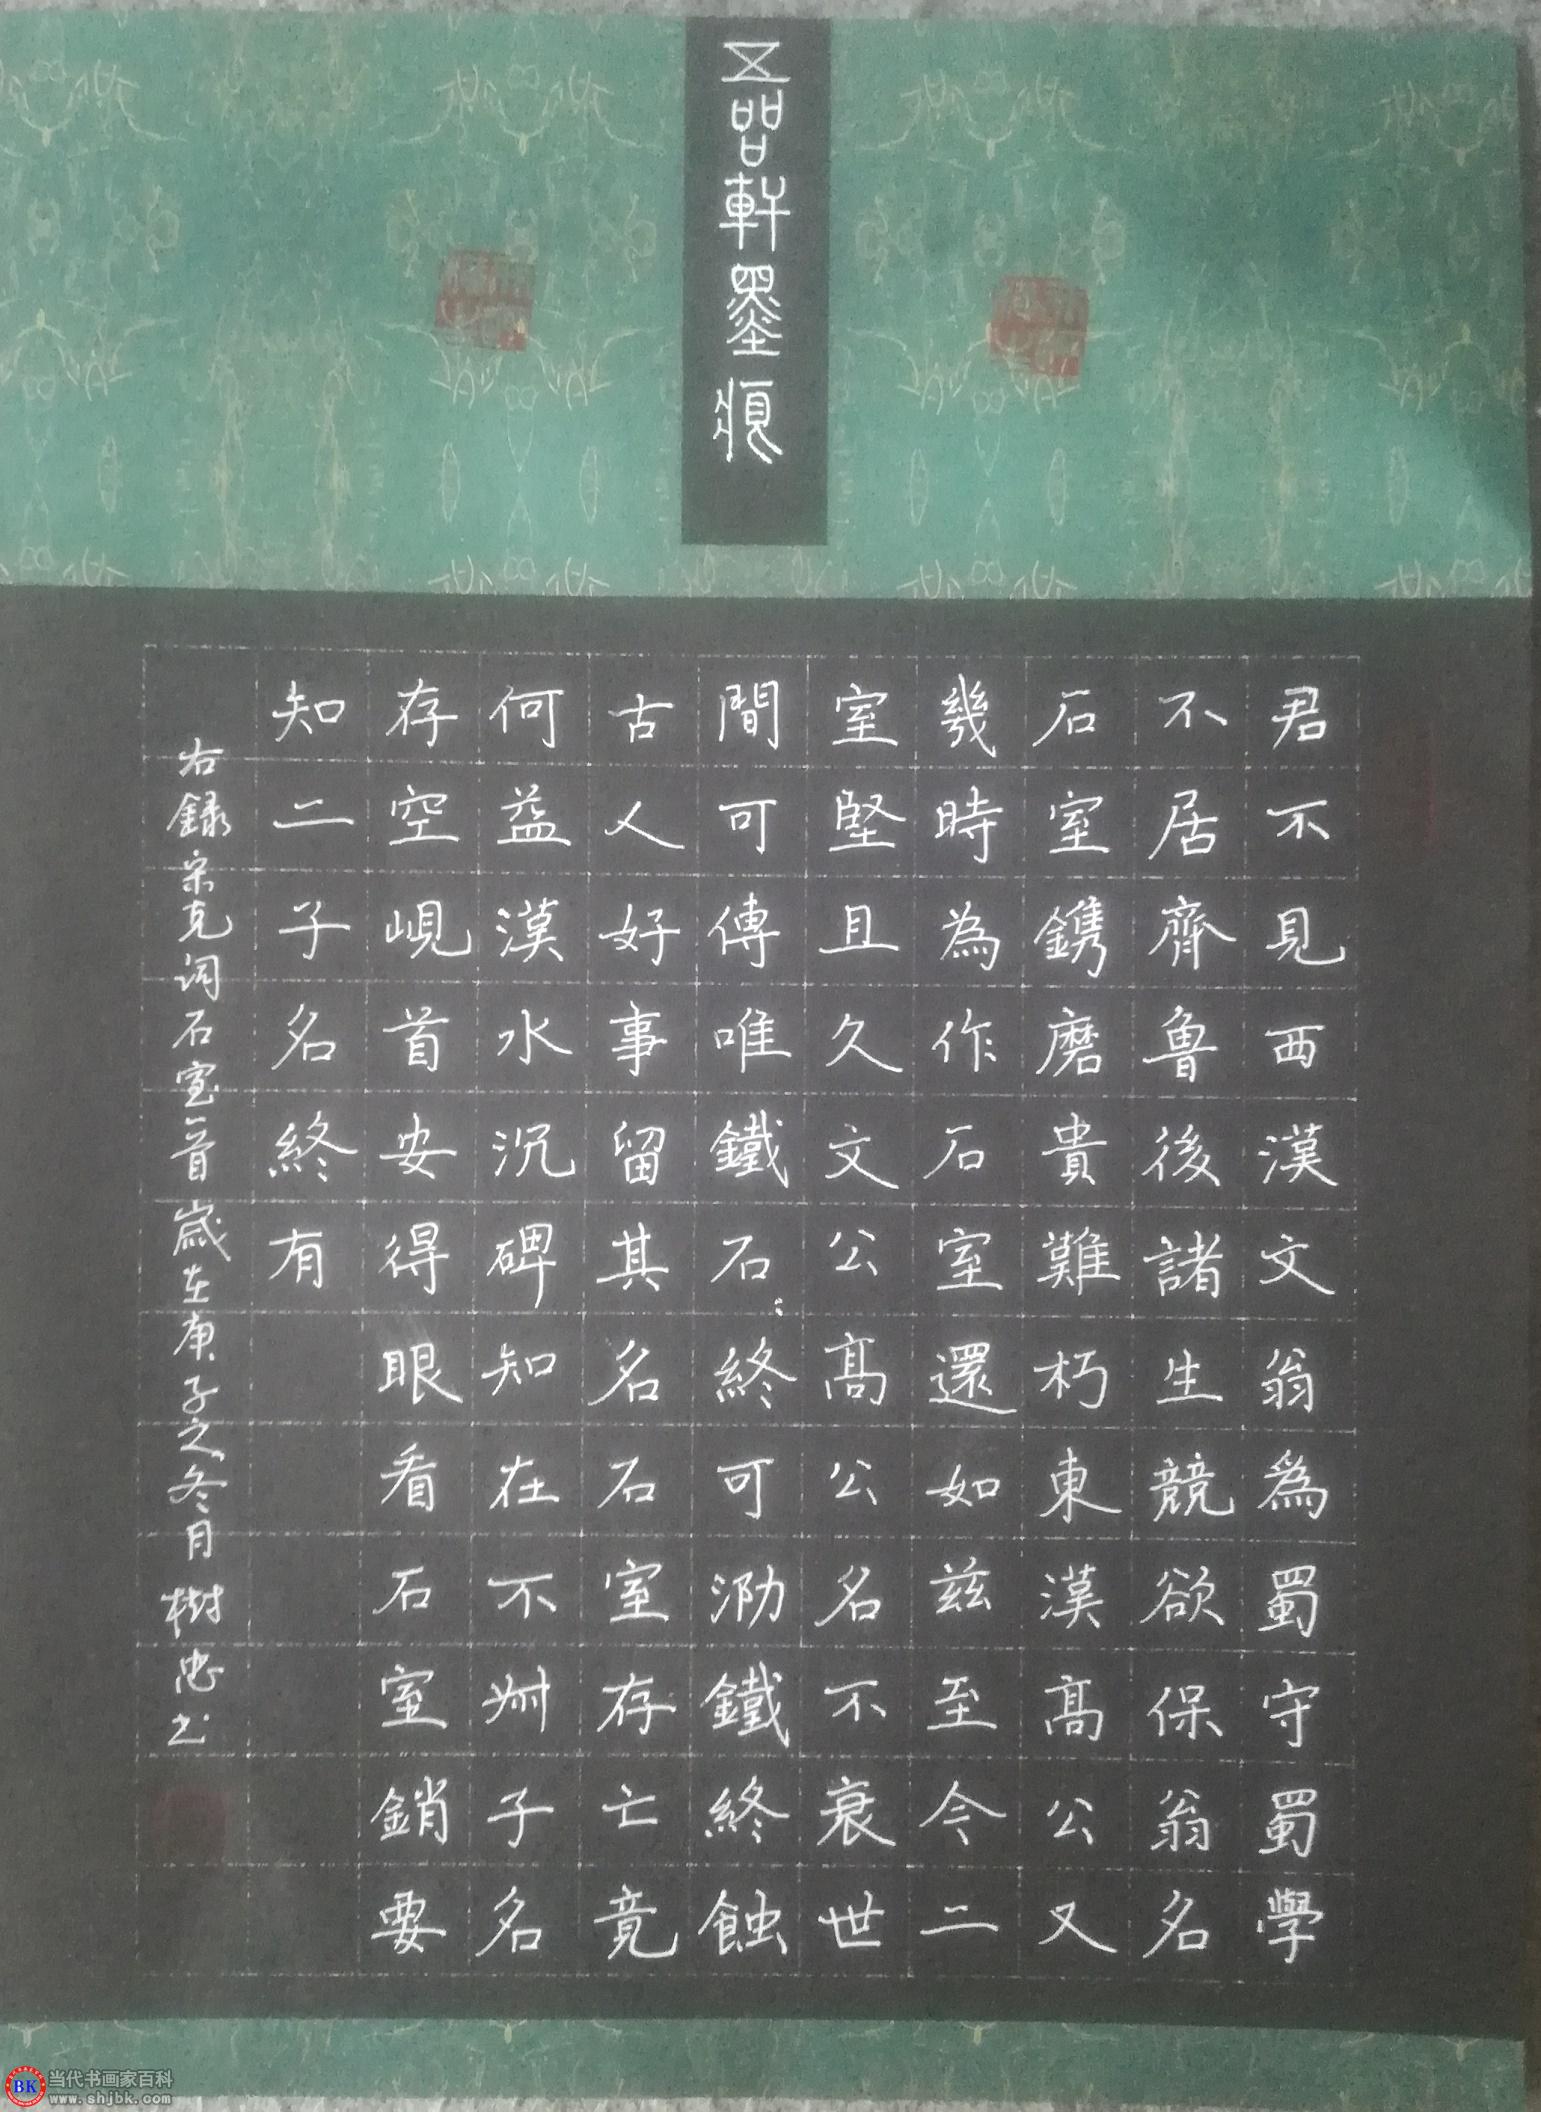 五品軒墨痕
君不見西漢文翁為蜀守蜀學
不居齊魯後諸生競欲保翁名
石室鐫磨貴難朽東漢高公又
幾時為作石室還如兹至今二
室堅且久文公高公名不衰世
間可傳唯鐵石:終可泐鐵終蝕
古人好事留其名石室存亡竟
何益漢水沉碑知在不子名
存空峴首安得眼看石室銷要
知二子名終有
右録宋克词石室一首歲在庚子之冬月樹忠书
当代书画家百科
www.shjbk.com
BK